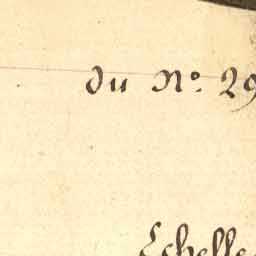 du N.º 29
Echelle